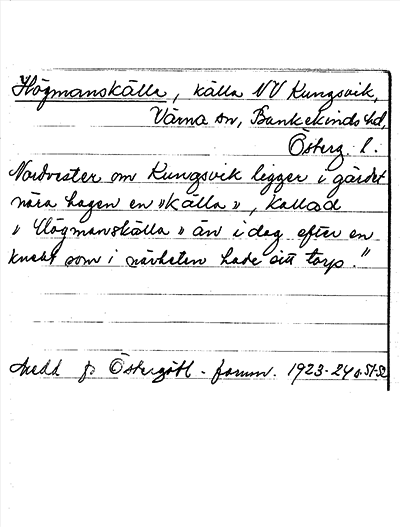 Högmanskälla, källa NV Kungsvik,
Värna sn, Bankekinds hd,
Österg. l.
Nordvester om Kungsvik ligger i gärdet
nära hagen en »källa», kallad
»Högmanskälla» än i dag efter en
knekt som i närheten hade sitt torp."
Medd fr Östergötl. fornm. 1923-24 s. 51-52